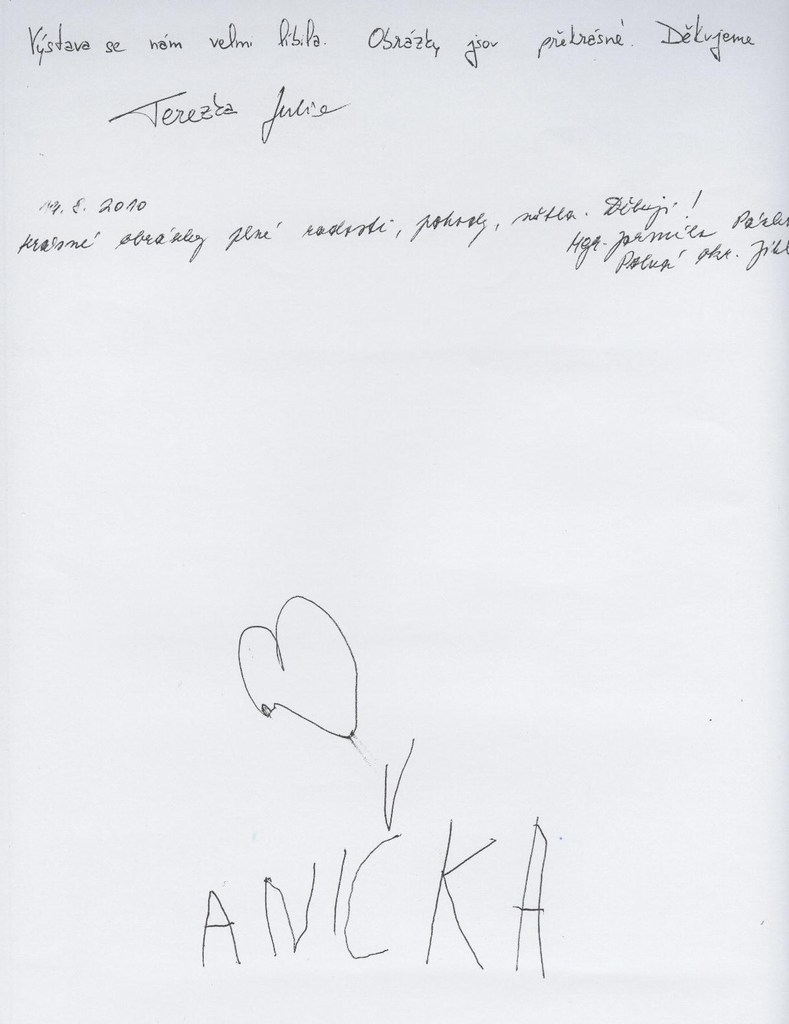 Výstava se nám velmi líbila. Obrázky jsou překrásné. Děkujeme
Terezka Julie
19. 8. 2010
Krásné obrázky plné radosti, pohody, světla. Děkuji!
Mgr. Jarmila
Polná okr. Jihl
ANIČKA